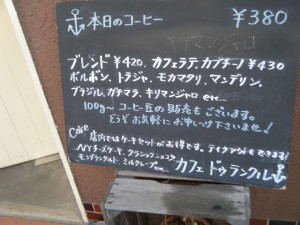 本日のコーヒー ¥380
キリマンジャロ
ブレンド ¥420. カフェラテ, カプチーノ ¥430
ボルボン、トラジャ、モカマタリ、マンデリン、
ブラジル、ガテマラ、キリマンジャロ etc...
100g〜コーヒー豆の販売もございます。
どうぞお気軽にお申しつけ下さいませ!
Cake 店内ではケーキセットがお得です。テイクアウトもできます!
NYチーズケーキ、クラシックショコラ
モンブランタルト、ミルクレープ etc...
カフェ ドゥ ランクル